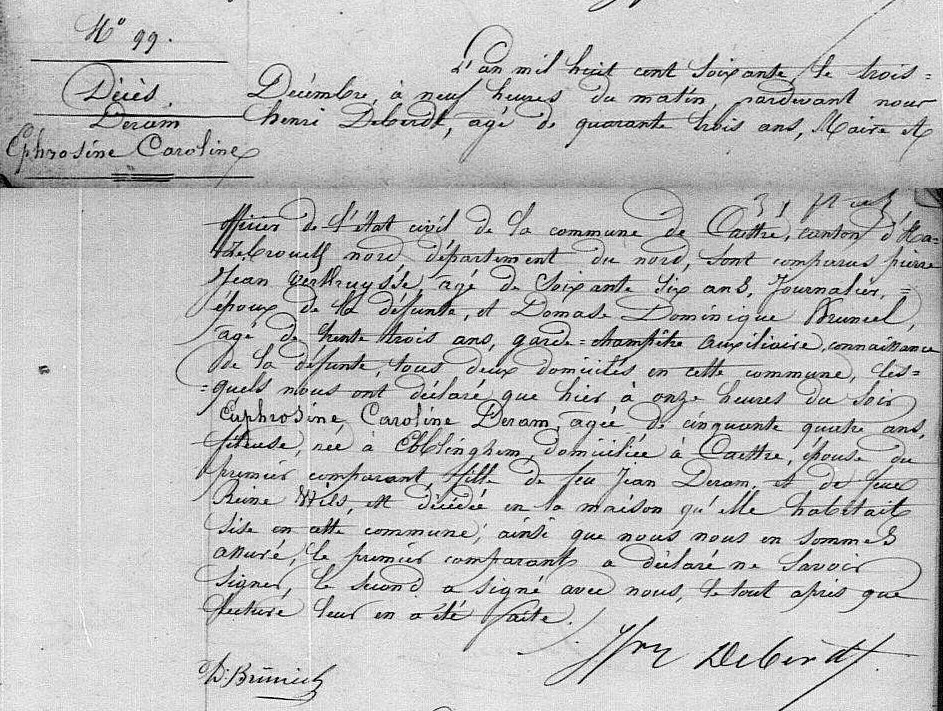 N° 99.
Décès
Deram
Ephrosine Caroline
L'an mil huit cent soixante, le trois =
Décembre, à neuf heures du matin, pardevant nous
henri Deberdt, agé de quarante trois ans, Maire et
officier de l'état civil de la commune de Caëstre, canton d'Ha-
zebrouck nord département du nord, sont comparus pierre
Jean Verkruysse, agé de soixante six ans, Journalier, =
époux de la défunte, et Domase Dominique Bruneel,
agé de trente trois ans, garde=champêtre auxiliaire, connaissance
de la défunte, tous deux domiciliés en cette commune, les=
=quels nous ont déclaré que hier à onze heures du soir
Euphrosine, Caroline Deram, agée de cinquante quatre ans,
fileuse, née à Ebblinghem, domiciliée à Caëstre, épouse du
premier comparant, fille de feu Jean Deram, et de feue
Reine Wils, est décédée en la maison qu'elle habitait
sise en cette commune; ainsi que nous nous en sommes
assuré, le premier comparant a déclaré ne savoir
signer, le second a signé avec nous, le tout après que
lecture leur en a été faite.
D. Bruneel
Hri Deberdt